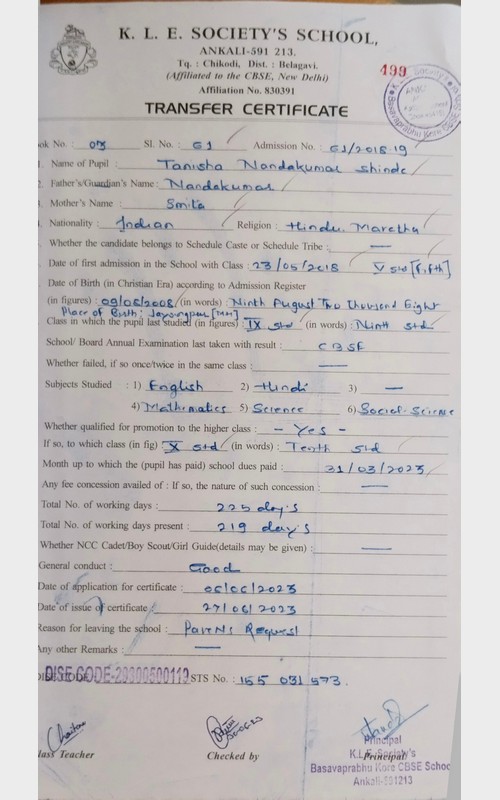 K. L. E. SOCIETY'S SCHOOL,
ANKALI-591 213.
Tq. : Chikodi, Dist. : Belagavi.
(Affiliated to the CBSE, New Delhi)
499
Affiliation No. 830391
TRANSFER CERTIFICATE
Basavaprabhu Kore CBSE
ook No. : 03 Sl. No. : 61 Admission No. : 61/2018-19
1. Name of Pupil : Tanisha Nandakumar Shinde
2. Father's/Guardian's Name : Nandakumar
3. Mother's Name : Smita
4. Nationality : Indian Religion : Hindu. Maratha
Whether the candidate belongs to Schedule Caste or Schedule Tribe : —
Date of first admission in the School with Class : 23/05/2018 V std [fifth]
Date of Birth (in Christian Era) according to Admission Register
(in figures) : 09/08/2008 (in words) : Ninth August Two thousand Eight
Place of Birth: Jaysingpur [MH]
Class in which the pupil last studied (in figures) : IX std (in words) : Ninth std
School/ Board Annual Examination last taken with result : CBSE
Whether failed, if so once/twice in the same class : —
Subjects Studied : 1) English 2) Hindi 3) —
4) Mathematics 5) Science 6) Social-Science
Whether qualified for promotion to the higher class : - Yes -
If so, to which class (in fig) X std (in words) : Tenth std
Month up to which the (pupil has paid) school dues paid : 31/03/2023
Any fee concession availed of : If so, the nature of such concession : —
Total No. of working days : 225 day's
Total No. of working days present : 219 day's
Whether NCC Cadet/Boy Scout/Girl Guide(details may be given) : —
General conduct : Good
Date of application for certificate : 06/06/2023
Date of issue of certificate : 27/06/2023
Reason for leaving the school : Parents Request
Any other Remarks : —
DISE CODE-29300500113 STS No. : 155 031 573.
lass Teacher Checked by Principal
Principal
K.L.E. Society's
Basavaprabhu Kore CBSE School
Ankali-591213